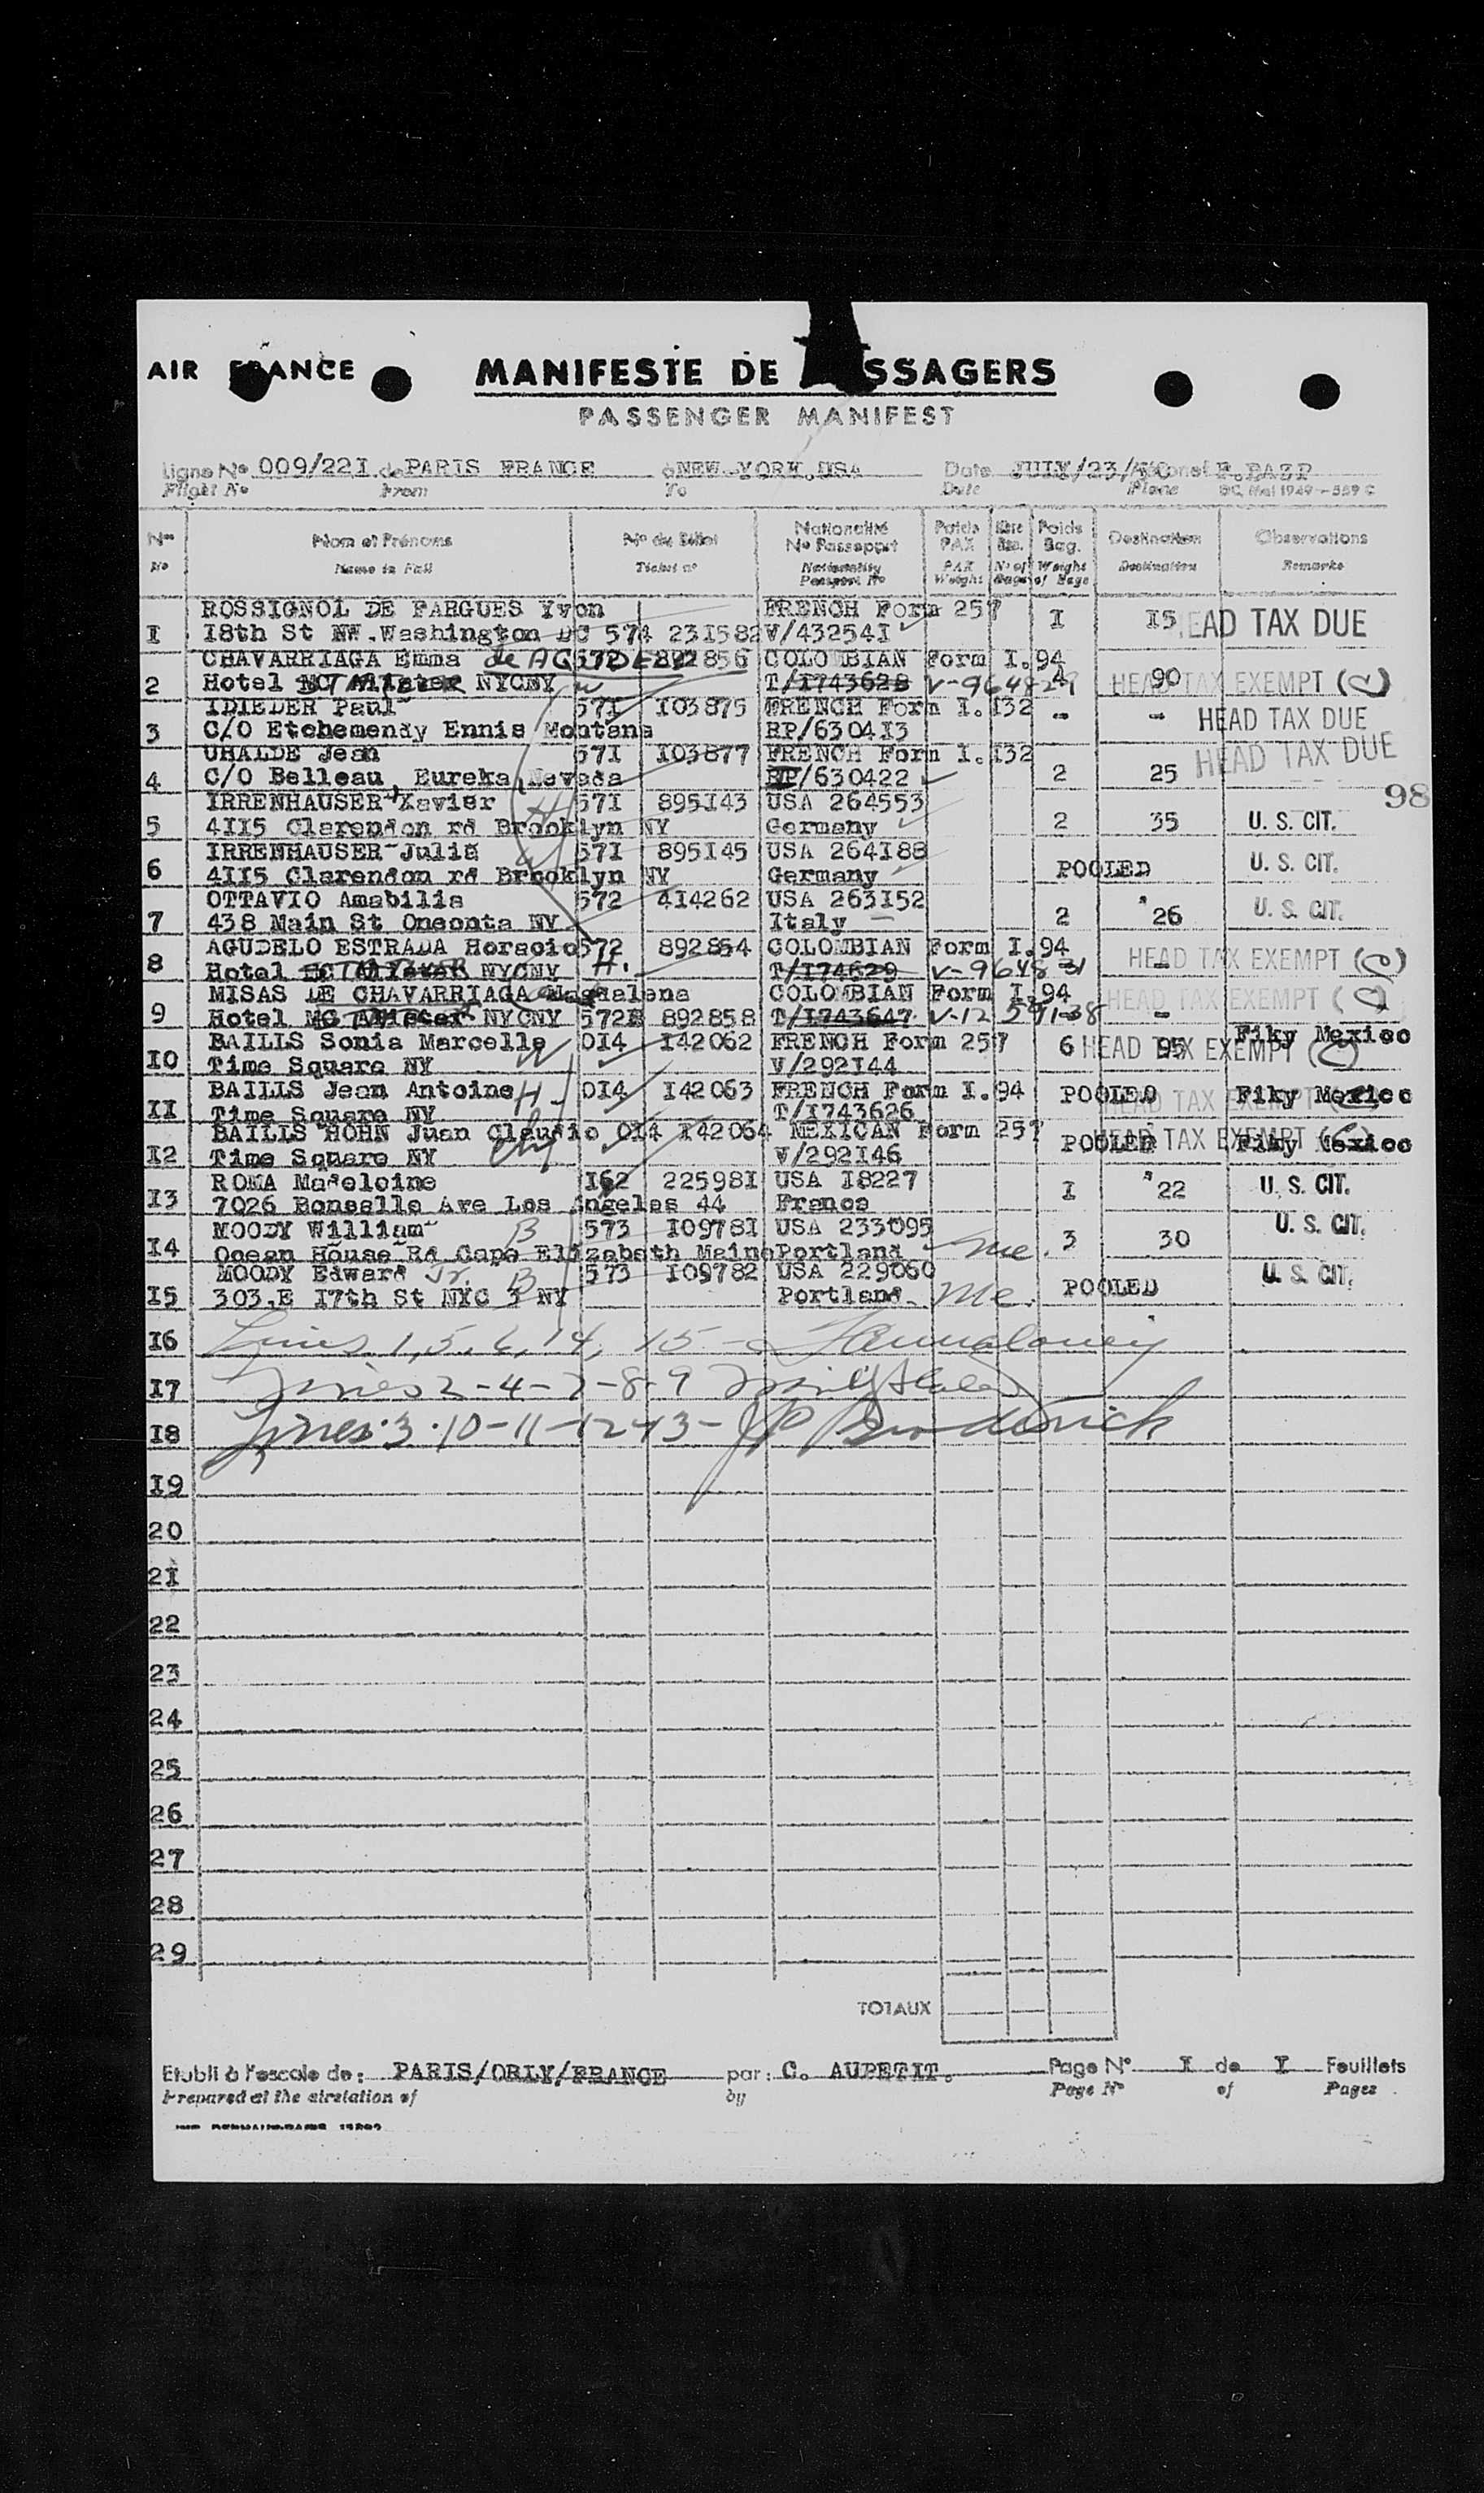 AIR FRANCE MANIFESTE DE PASSAGERS
PASSENGER MANIFEST
Ligne No 009/22I de PARIS FRANCE à NEW YORK.USA Date JUIY/23/ F.BAZP
Flight No From To Date Plane
Nos Nom et Prénoms No du Billet Nationalité No Passeport Poids PAX Poids Bag. Destination Observations
No Name in Full Ticket no Nationality Passport No PAX Weight No of Bags Weight of Bags Destination Remarks
ROSSIGNOL DE FARGUES Yvon FRENCH Form 257
I I8th St NW.Washington DC 574 23I582 V/43254I I I5 HEAD TAX DUE
CHAVARRIAGA Emma de AGUDELO 572 892856 COLOMBIAN Form I.94
2 Hotel MC Alister NYCNY W T/I743628 V-964829 4 90 HEAD TAX EXEMPT (C)
IDIEDER Paul 57I I03875 FRENCH Form I.I32
3 C/O Etchemendy Ennis Montana RP/6304I3 - - HEAD TAX DUE
UHALDE Jean 57I I03877 FRENCH Form I.I32
4 C/O Belleau, Eureka Nevada RP/630422 2 25 HEAD TAX DUE
98
IRRENHAUSER Xavier H 57I 895I43 USA 264553
5 4II5 Clarendon rd Brooklyn NY Germany 2 35 U. S. CIT.
IRRENHAUSER Julia W 57I 895I45 USA 264I88
6 4II5 Clarendon rd Brooklyn NY Germany POOLED U. S. CIT.
OTTAVIO Amabilia 572 4I4262 USA 263I52
7 438 Main St Oneonta NY Italy 2 26 U. S. CIT.
AGUDELO ESTRADA Horacio 572 892854 COLOMBIAN Form I.94
8 Hotel MC Alister NYCNY H. T/I74629 V-964831 - HEAD TAX EXEMPT (C)
MISAS DE CHAVARRIAGA Magdalena COLOMBIAN Form I.94
9 Hotel MC Alister NYCNY 572 892858 T/I743647 V-12 - HEAD TAX EXEMPT (C)
BAILLS Sonia Marcelle W 0I4 I42062 FRENCH Form 257 6 95 Fiky Mexico
I0 Time Square NY V/292I44 HEAD TAX EXEMPT (C)
BAILLS Jean Antoine H 0I4 I42063 FRENCH Form I.94 POOLED Fiky Mexico
II Time Square NY T/I743626 HEAD TAX EXEMPT (C)
BAILLS HOHN Juan Claudio 0I4 I42064 MEXICAN Form 257
I2 Time Square NY V/292I46 POOLED HEAD TAX EXEMPT (C) Fiky Mexico
ROMA Madeleine I62 22598I USA I8227
I3 7026 Bonsalle Ave Los Angeles 44 France I 22 U. S. CIT.
MOODY William B 573 I0978I USA 233095
I4 Ocean House Rd Cape Elizabeth Maine Portland me. 3 30 U. S. CIT.
MOODY Edward Jr. B 573 I09782 USA 229060
I5 303.E I7th St NYC 3 NY Portland. Me. POOLED U. S. CIT.
I6 Lines 1, 5, 6, 14, 15 -
I7 Lines 2-4-7-8-9
I8 Lines 3-10-11-12-13- JP Broderick
I9
20
2I
22
23
24
25
26
27
28
29
TOTAUX
Etabli à l'escale de: PARIS/ORLY/FRANCE par: C. AUPETIT. Page No I de I Feuillets
Prepared at the airstation of by Page No of Pages